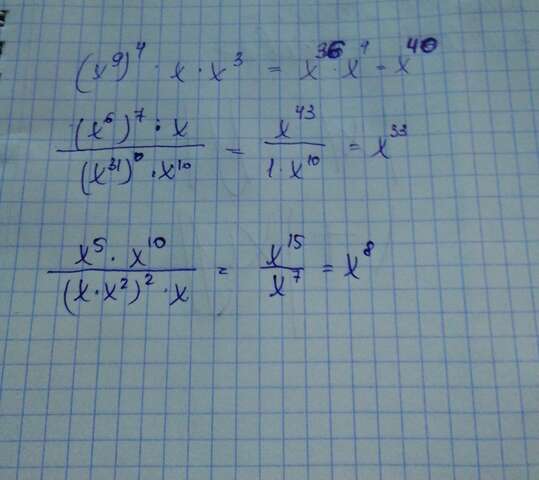 (x⁹)⁴ · x · x³ = x³⁶ · x⁴ = x⁴⁰
(x⁶)⁷ · x / (x³¹)⁰ · x¹⁰ = x⁴³ / 1 · x¹⁰ = x³³
x⁵ · x¹⁰ / (x · x²)² · x = x¹⁵ / x⁷ = x⁸